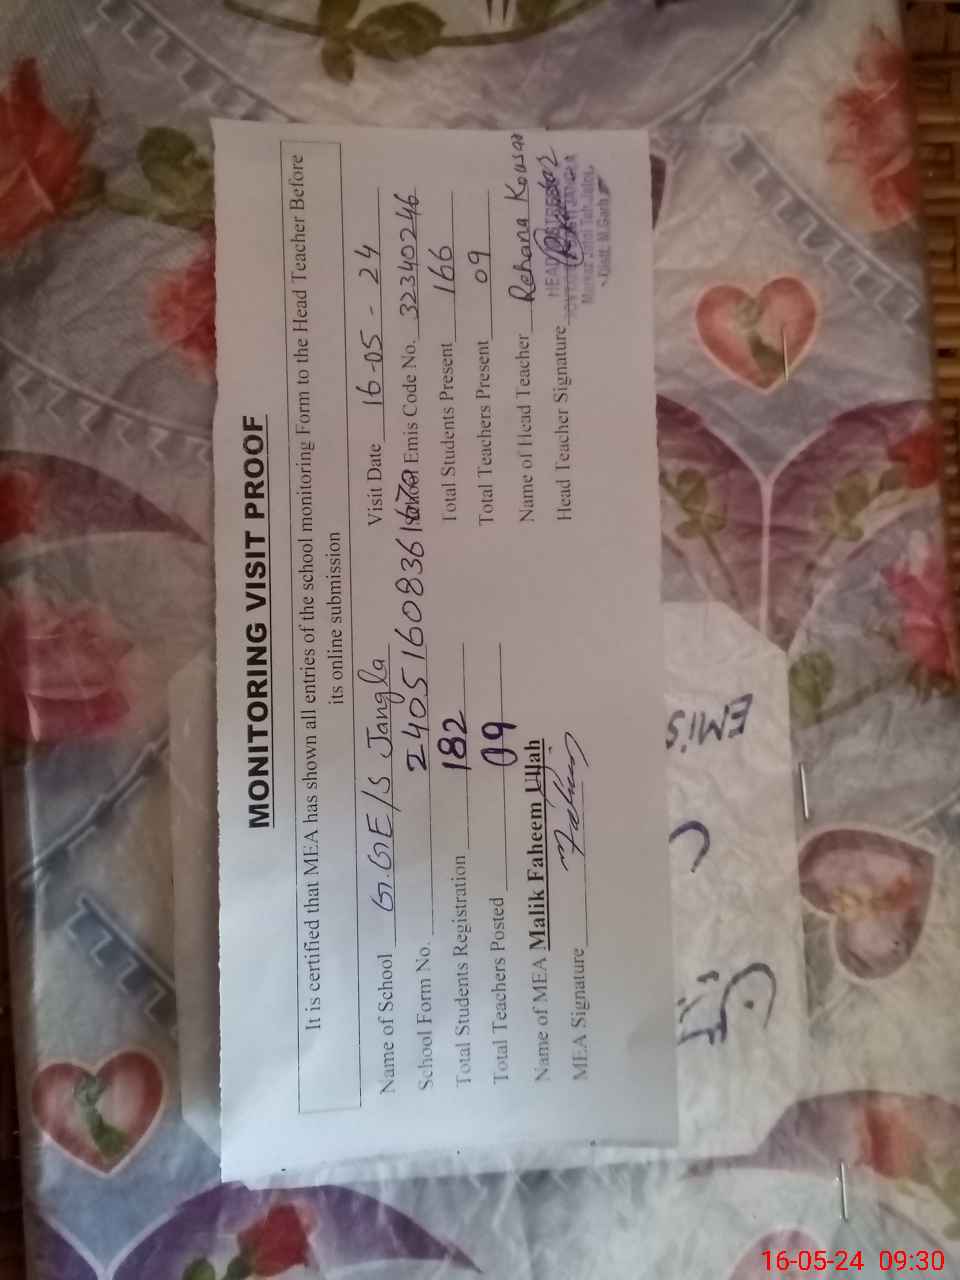 MONITORING VISIT PROOF
It is certified that MEA has shown all entries of the school monitoring Form to the Head Teacher Before
its online submission
Name of School G.GE/S Jangla Visit Date 16-05-24
School Form No. 2405160836 School Emis Code No. 32340246
Total Students Registration 182 Total Students Present 166
Total Teachers Posted 09 Total Teachers Present 09
Name of MEA Malik Faheem Ullah Name of Head Teacher Rehana Kousar
MEA Signature Faheem Head Teacher Signature
HEADMISTRESS
Distt. M.Garh
EMIS
16-05-24 09:30